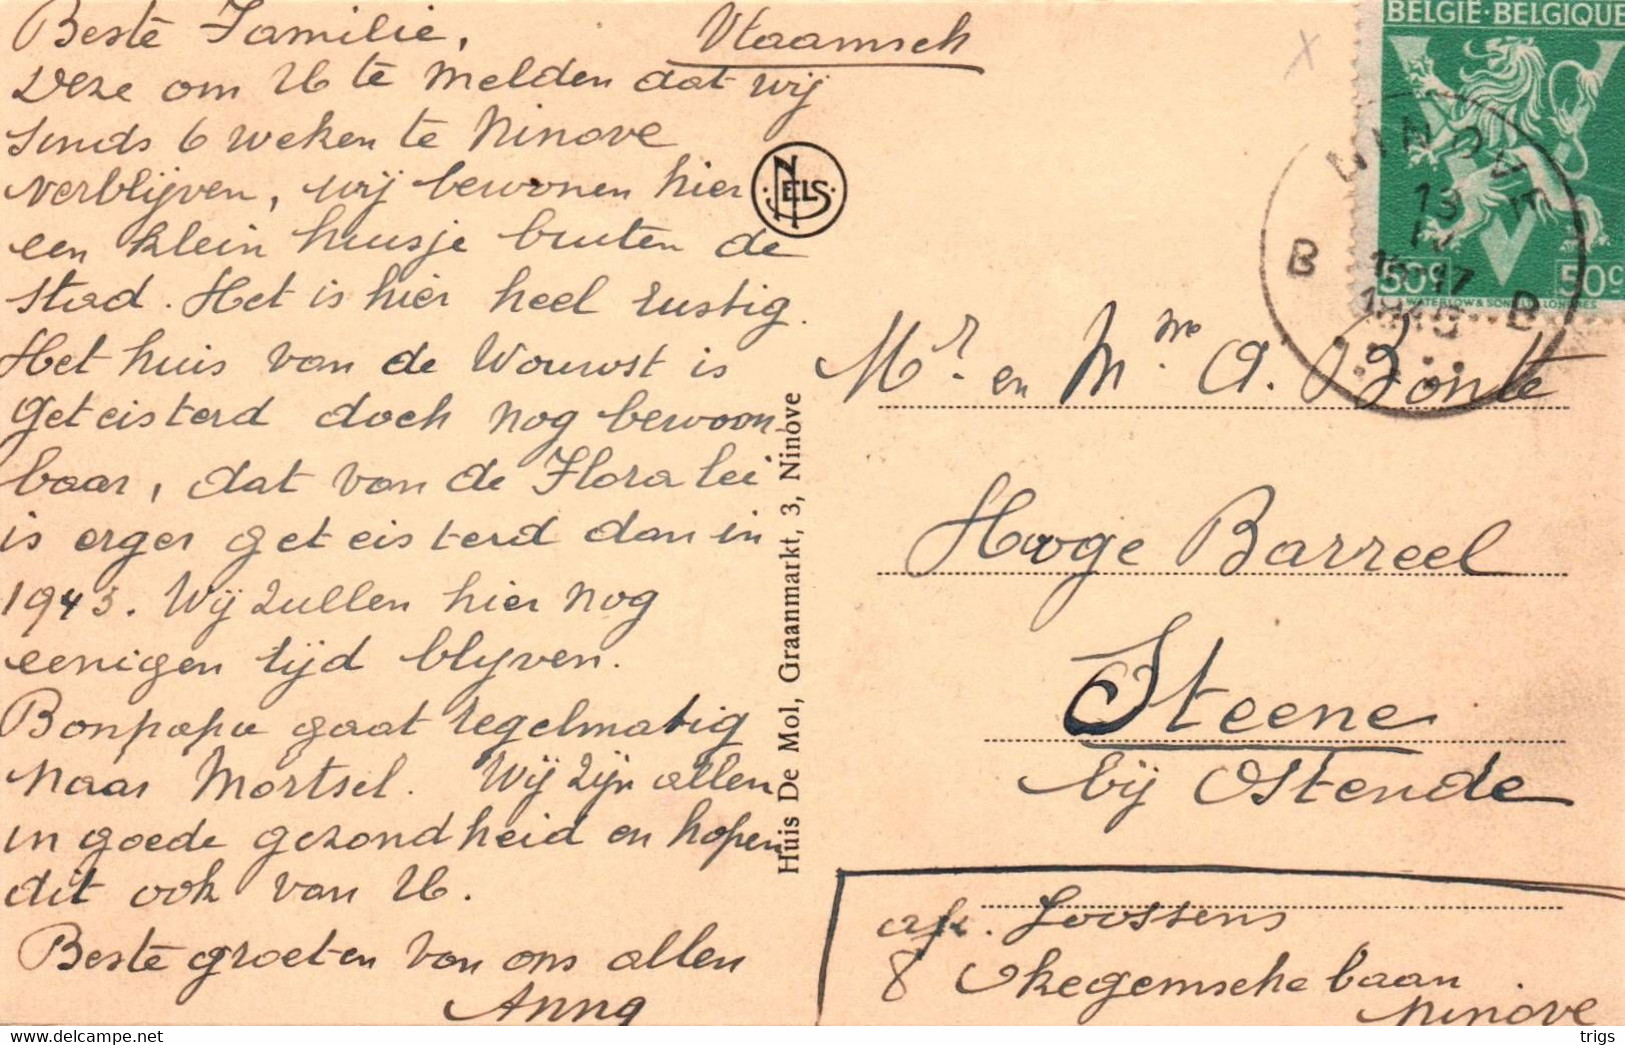 Beste Familie,
Vlaamsch
Deze om U te melden dat wij
sinds 6 weken te Ninove
verblijven, wij bewonen hier
een klein huisje buiten de
stad. Het is hier heel rustig.
Het huis van de Wouwst is
geteisterd doch nog bewoon-
baar, dat van de Floralei
is erger geteisterd dan in
1943. Wij zullen hier nog
eenigen tijd blijven.
Bonpapa gaat regelmatig
naar Mortsel. Wij zijn allen
in goede gezondheid en hopen
dit ook van U.
Beste groeten van ons allen
Anny
NELS
Huis De Mol, Graanmarkt, 3, Ninove
BELGIE·BELGIQUE
50c 50c
WATERLOW & SONS LONDRES
NINOVE
13
B B
Mr. en Mme. A. Bonte
Hooge Barreel
Steene
bij Ostende
afz. Goossens
8 Okegemsche baan
Ninove
www.delcampe.net
trigs